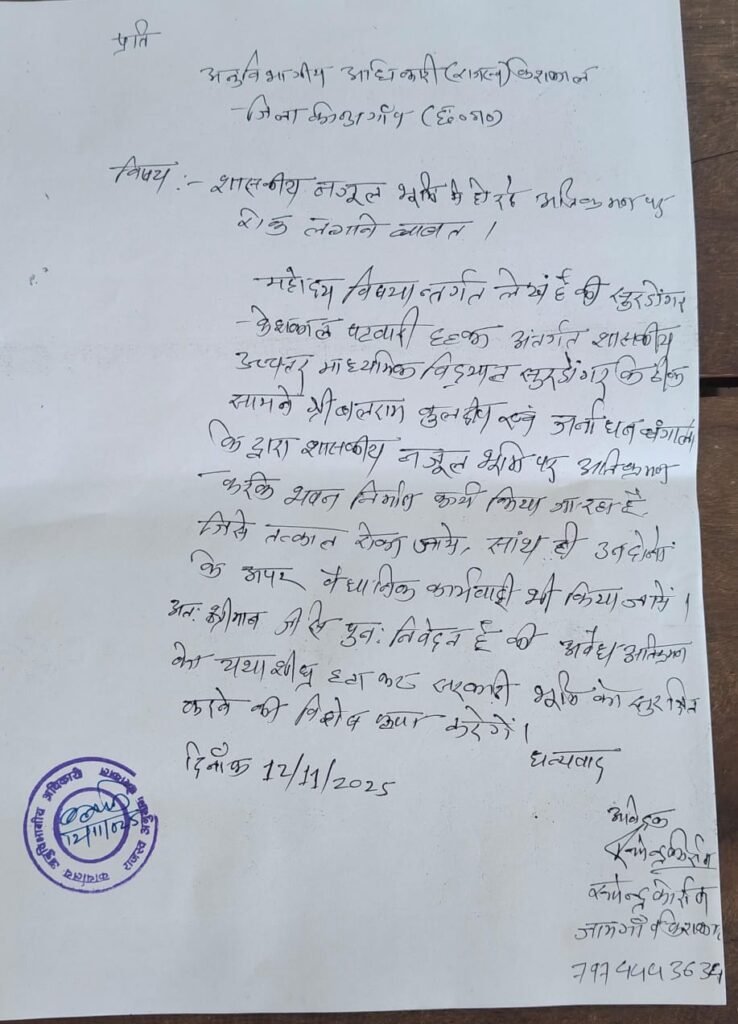 प्रति
अनुविभागीय अधिकारी (राजस्व) केशकाल
जिला कोन्डागाँव (छ०ग०)
विषय :- शासकीय नजूल भूमि में हो रहे अतिक्रमण पर
रोक लगाने बाबत ।
महोदय विषयान्तर्गत लेख है की सुरडोंगर
केशकाल पटवारी हल्का अंतर्गत शासकीय
उच्चतर माध्यमिक विद्यालय सुरडोंगर के ठीक
सामने श्री बलराम कुलदीप एवं जर्नाधन बंगाली
के द्वारा शासकीय नजूल भूमि पर अतिक्रमण
करके भवन निर्माण कार्य किया जा रहा है
जिसे तत्काल रोका जाये, सांथ ही उन दोनों
के उपर वैधानिक कार्यवाही भी किया जाये ।
अतः श्रीमान जी से पुनः निवेदन है की अवैध अतिक्रमण
को यथा शीघ्र हटा कर सरकारी भूमि को सुरक्षित
करने की विशेष कृपा करेगें ।
दिनाँक 12/11/2025 धन्यवाद
कार्यालय अनुविभागीय अधिकारी
12/11/025
आवेदक
जामगाँव केशकाल
7974443634